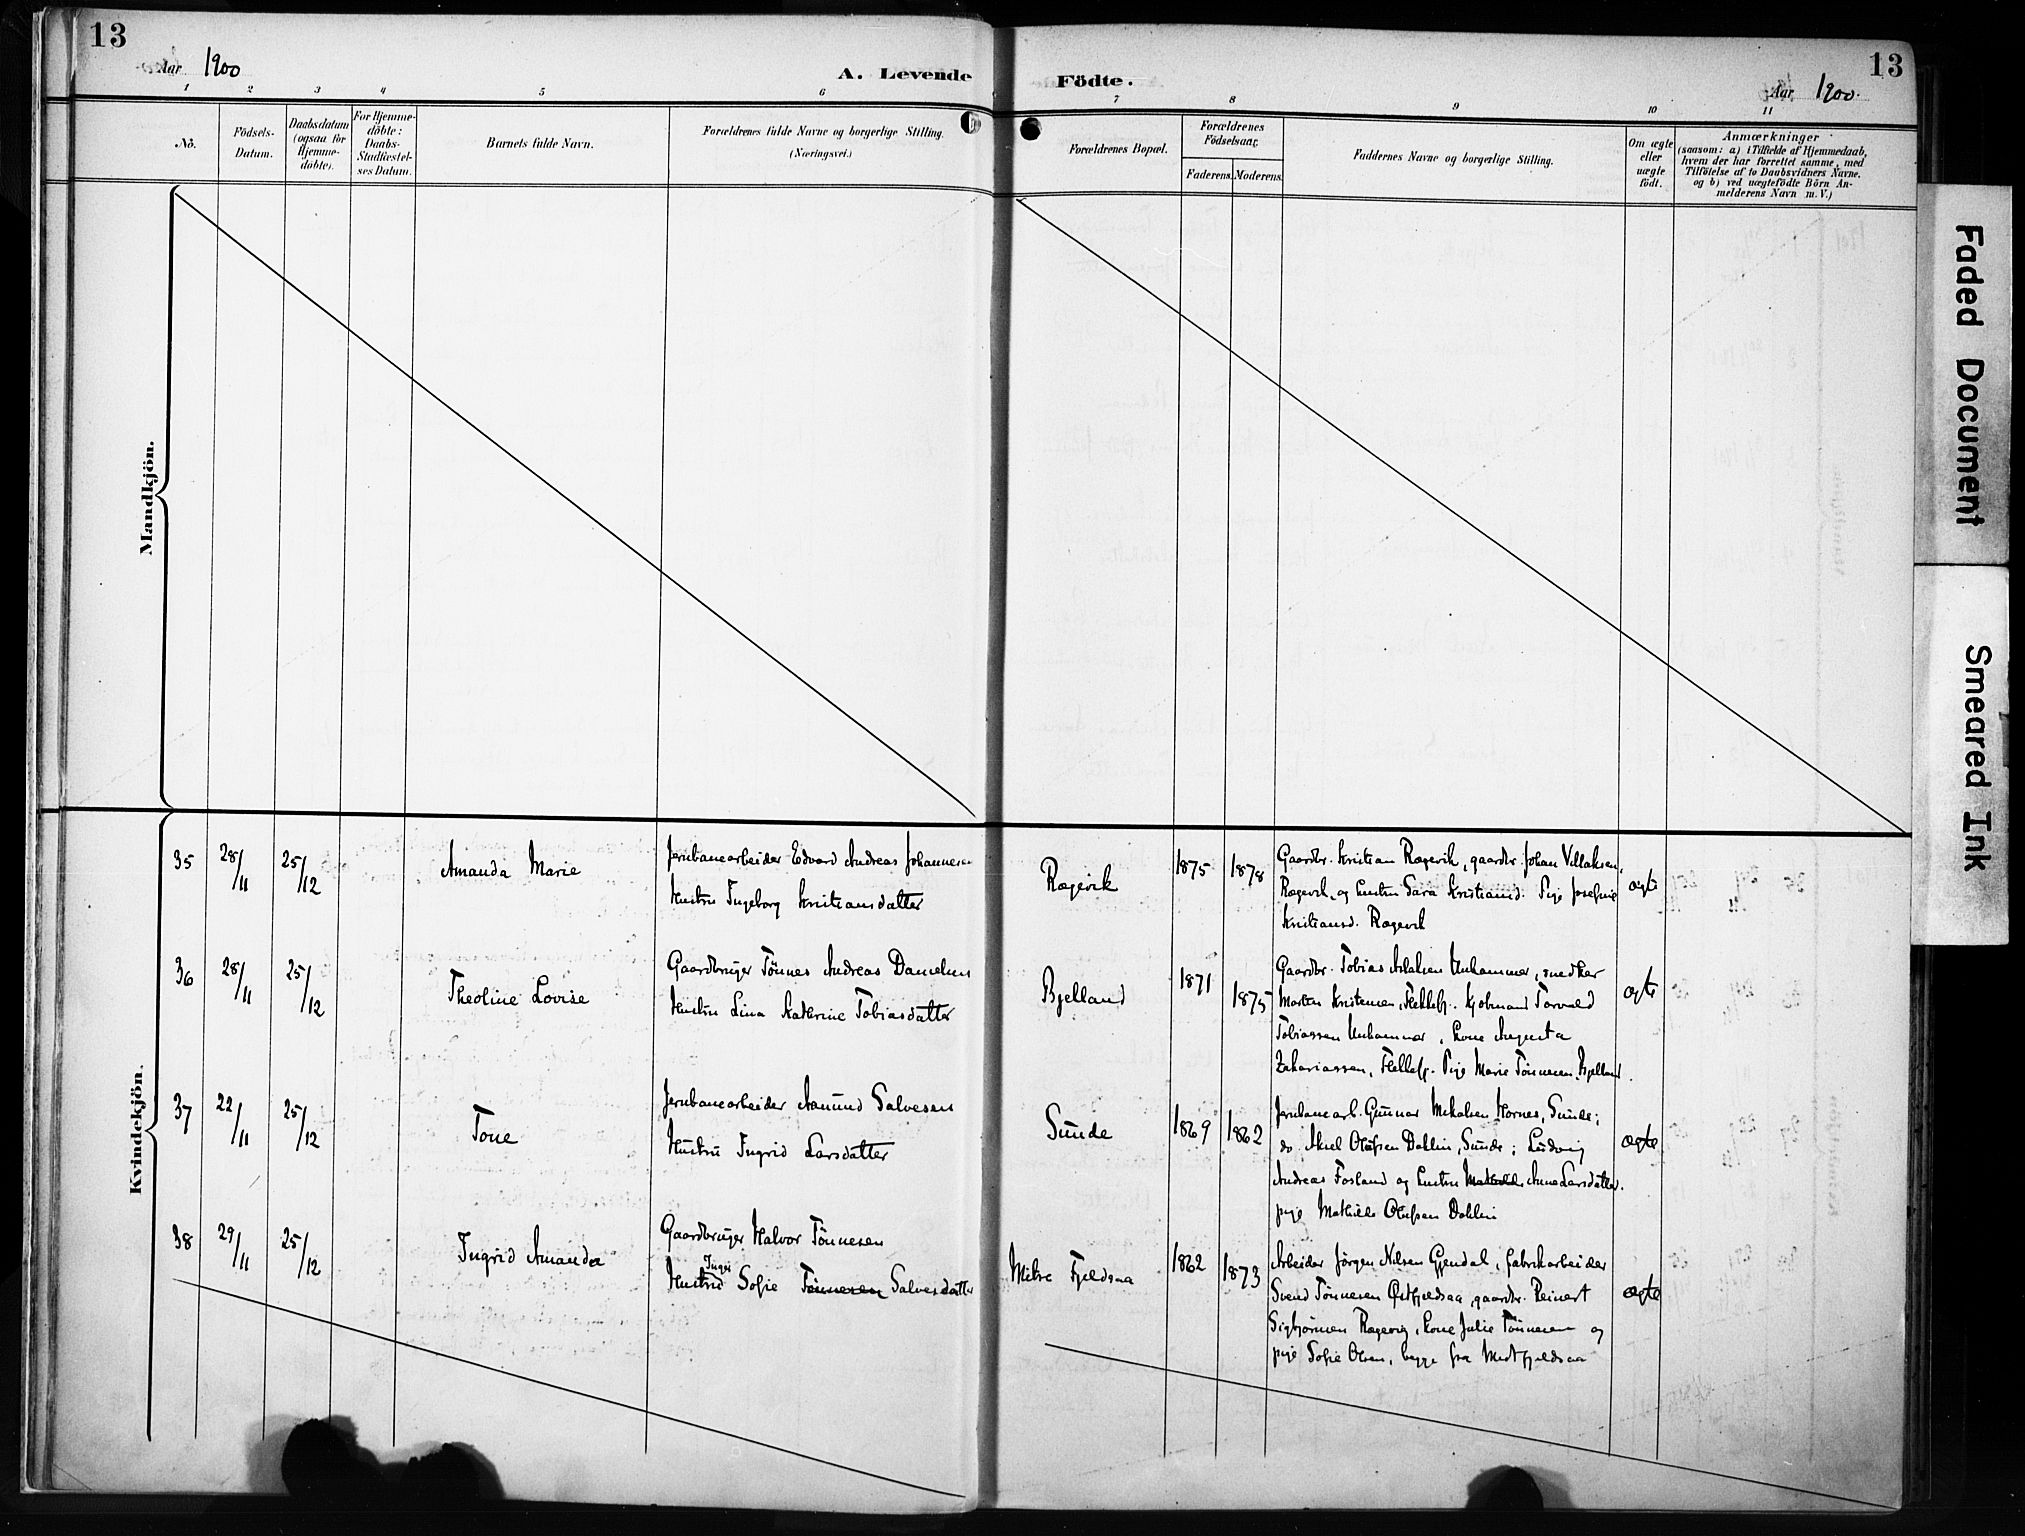 13
Aar 1900
A. Levende
Födte.
Aar 1900.
13
1 2 3 4 5 6
7 8 9 10 11
No.
Födsels-Datum.
Daabsdatum (ogsaa for Hjemme-döbte).
For Hjemme-döbte: Daabs-Stadfæstel-ses Datum.
Barnets fulde Navn.
Forældrenes fulde Navne og borgerlige Stilling.
(Næringsvei.)
Forældrenes Bopæl.
Forældrenes Födselsaar.
Faderens. Moderens.
Faddernes Navne og borgerlige Stilling.
Om ægte eller uægte födt.
Anmærkninger
(saasom: a) i Tilfælde af Hjemmedaab,
hvem der har forrettet samme, med
Tilföielse af to Daabsvidners Navne.
og b) ved uægtefödte Börn An-
melderens Navn m.V.)
Mandkjön.
Kvindekjön.
35 28/11 25/12 Amanda Marie
Jernbanearbeider Edvard Andreas Johannesen
Hustru Ingeborg Kristiansdatter
Rægevik 1875 1878
Gaardbr. Kristian Rægevik, gaardbr. Johan Villaksen,
Rægevik, og hustru Sara Kristiansd. Pige Josefine
Kristiansd. Rægevik
ægte
36 28/11 25/12 Theoline Lovise
Gaardbruger Tönnes Andreas Danielsen
Hustru Lina Katerine Tobiasdatter
Bjelland 1871 1875
Gaardbr. Tobias Aslaksen Unhammer, snedker
Morten Kristensen, Flekkefj. Kjöbmand Torvald
Tobiassen Unhammer, kone Augusta
Zakariassen, Flekkefj. Pige Marie Tönnesen, Bjelland.
ægte
37 22/11 25/12 Tone
Jernbanearbeider Aamund Salvesen
Hustru Ingrid Larsdatter
Sunde 1869 1862
Jernbanearb. Gunnar Mikalsen Hornes, Sunde;
do Axel Olufsen Dahlin, Sunde; Ludvig
Andreas Fosland og hustru Mathilde Anne Larsdatter.
pige Mathilde Olufsen Dahlin
ægte
38 29/11 25/12 Ingrid Amanda
Gaardbruger Halvor Tönnesen
Inger
Hustru Sofie Tönnesen Salvesdatter
Mitre Fjeldsaa 1862 1873
Arbeider Jörgen Nilsen Gjendal, fabrikarbeider
Svend Tönnesen Østfjeldsaa, gaardbr. Reinert
Sigbjörnsen Rægevig, kone Julie Tönnesen og
pige Sofie Olsen, begge fra Midtfjeldsaa
ægte
Faded Document
Smeared Ink